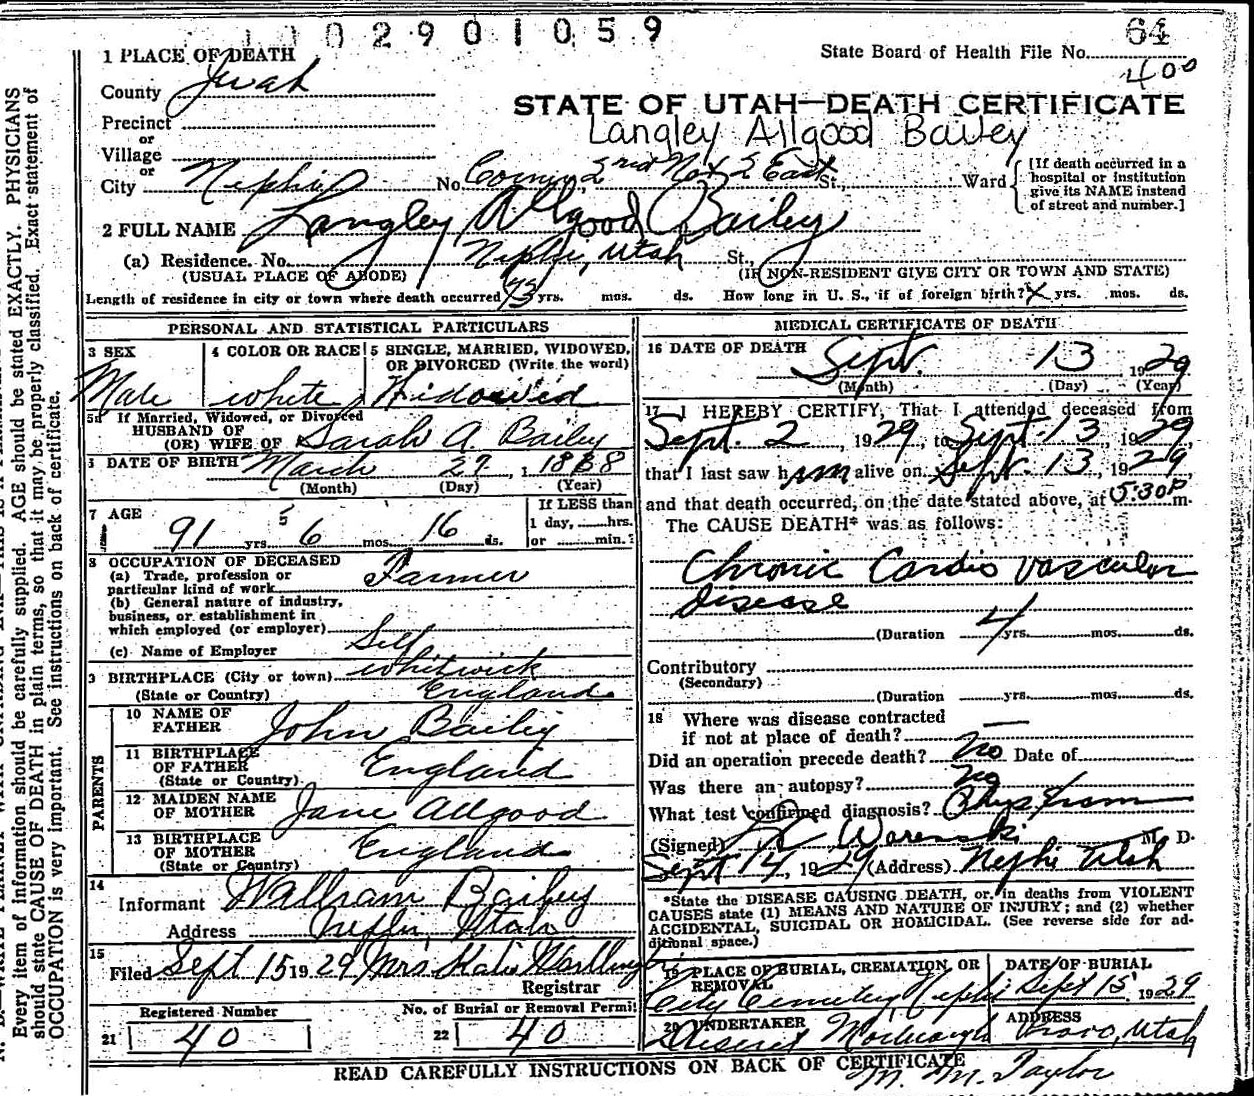 1 0 0 2 9 0 1 0 5 9
64
1 PLACE OF DEATH
State Board of Health File No.
400
County Juab
STATE OF UTAH—DEATH CERTIFICATE
Precinct
Langley Allgood Bailey
or
Village
or
City Nephi No. Corner 2nd No & 2 East St., Ward
[If death occurred in a
hospital or institution
give its NAME instead
of street and number.]
2 FULL NAME Langley Allgood Bailey
(a) Residence. No. Nephi, Utah St.,
(USUAL PLACE OF ABODE) (IF NON-RESIDENT GIVE CITY OR TOWN AND STATE)
Length of residence in city or town where death occurred 73 yrs. mos. ds. How long in U. S., if of foreign birth? X yrs. mos. ds.
PERSONAL AND STATISTICAL PARTICULARS
3 SEX
Male
4 COLOR OR RACE
white
5 SINGLE, MARRIED, WIDOWED,
OR DIVORCED (Write the word)
Widowed
5a If Married, Widowed, or Divorced
HUSBAND OF
(OR) WIFE OF Sarah A. Bailey
DATE OF BIRTH March 27, 1838
(Month) (Day) (Year)
7 AGE
91 yrs. 5 6 mos. 16 ds.
If LESS than
1 day, hrs.
or min.?
8 OCCUPATION OF DECEASED
(a) Trade, profession or
particular kind of work Farmer
(b) General nature of industry,
business, or establishment in
which employed (or employer)
(c) Name of Employer Self
9 BIRTHPLACE (City or town) Whitwick
(State or Country) England
PARENTS
10 NAME OF
FATHER John Bailey
11 BIRTHPLACE
OF FATHER England
(State or Country)
12 MAIDEN NAME
OF MOTHER Jane Allgood
13 BIRTHPLACE
OF MOTHER England
(State or Country)
14
Informant William Bailey
Address Nephi, Utah
15
Filed Sept 15 1929 Mrs Katie
Registrar
Registered Number
21 40
No. of Burial or Removal Permit
22 40
MEDICAL CERTIFICATE OF DEATH
16 DATE OF DEATH Sept. 13 1929
(Month) (Day) (Year)
17 I HEREBY CERTIFY, That I attended deceased from
Sept. 2 1929, to Sept. 13, 1929
that I last saw him alive on Sept. 13, 1929
and that death occurred, on the date stated above, at 5:30 P m.
The CAUSE DEATH* was as follows:
Chronic Cardio vascular
disease
(Duration 4 yrs. mos. ds.
Contributory
(Secondary)
(Duration yrs. mos. ds.
18 Where was disease contracted
if not at place of death? —
Did an operation precede death? No Date of
Was there an autopsy? No
What test confirmed diagnosis? Phys Exam
(Signed) Warenski M. D.
Sept 14, 1929 (Address) Nephi Utah
*State the DISEASE CAUSING DEATH, or, in deaths from VIOLENT
CAUSES state (1) MEANS AND NATURE OF INJURY; and (2) whether
ACCIDENTAL, SUICIDAL OR HOMICIDAL. (See reverse side for ad-
ditional space.)
19 PLACE OF BURIAL, CREMATION, OR
REMOVAL
City Cemetery Nephi
DATE OF BURIAL
Sept 15 1929
20 UNDERTAKER
Deseret Mortuary
ADDRESS
Provo, Utah
READ CAREFULLY INSTRUCTIONS ON BACK OF CERTIFICATE
M. M. Taylor
Every item of information should be carefully supplied. AGE should be stated EXACTLY. PHYSICIANS
should state CAUSE OF DEATH in plain terms, so that it may be properly classified. Exact statement of
OCCUPATION is very important. See instructions on back of certificate.